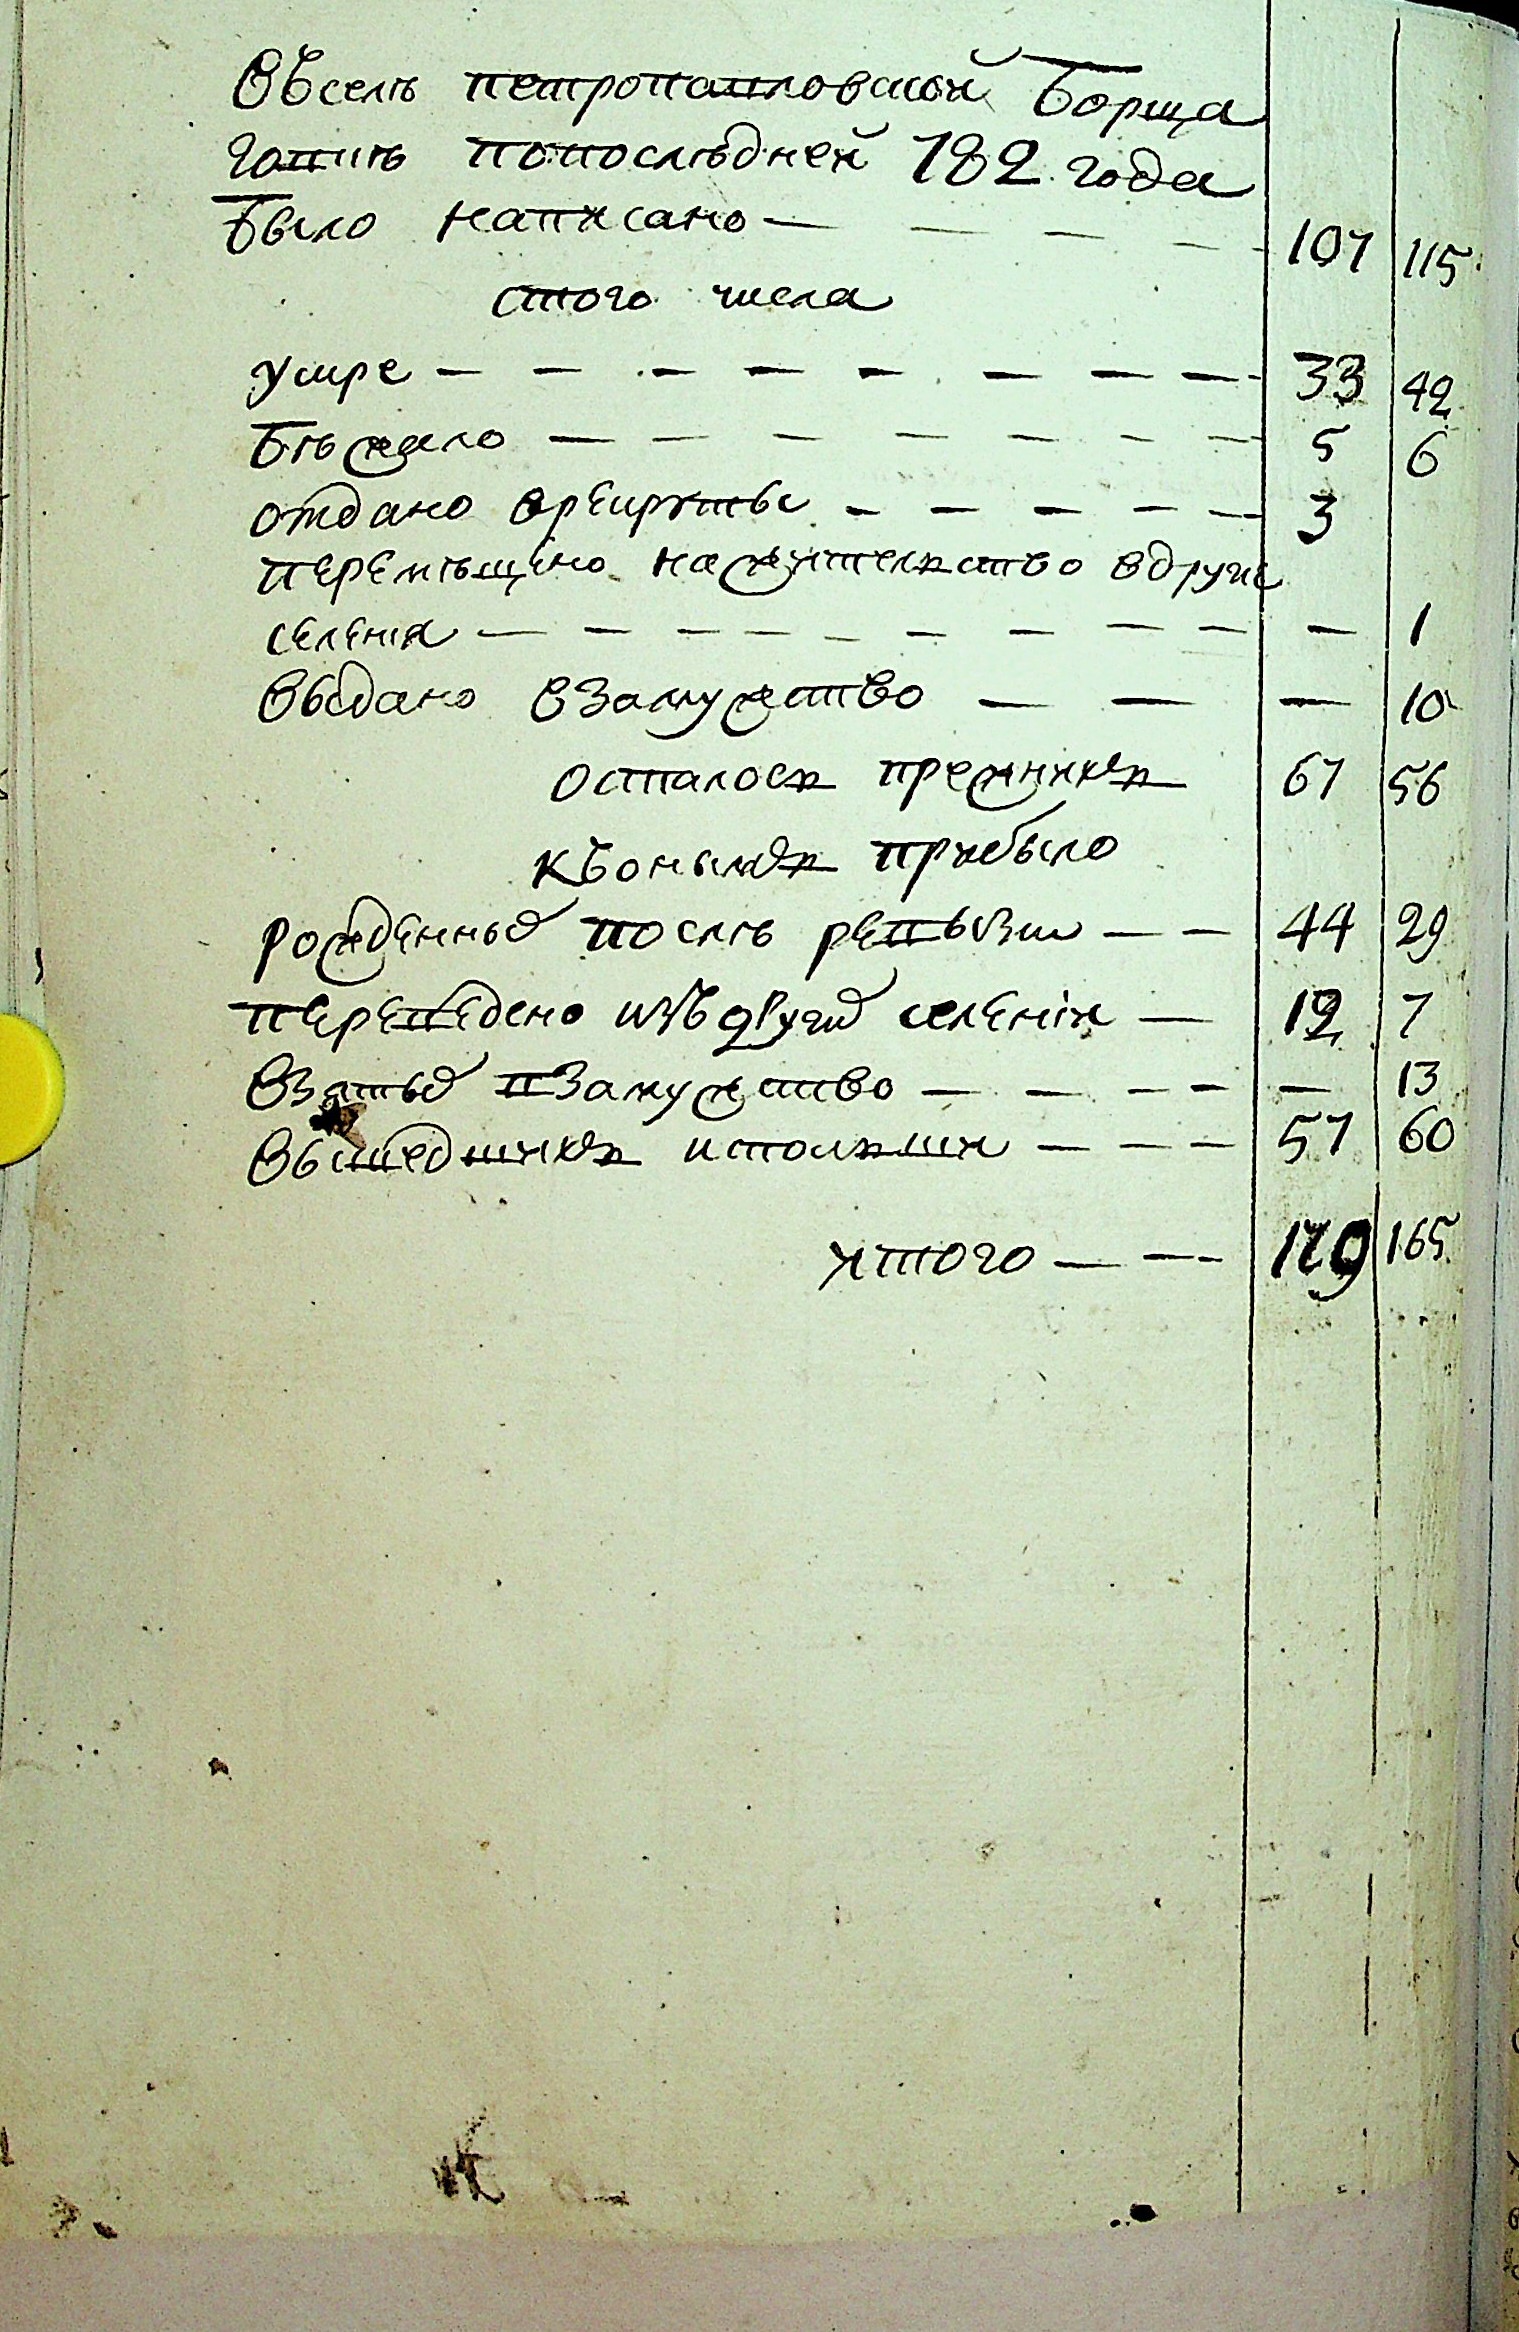 Въселѣ петропавловской Борща
говкѣ попослѣдней 782 года
Было написано — — — — 107 115
стого числа
умре — — — — — — — — 33 42
Бѣжало — — — — — — — 5 6
отдано врекруты — — — — — 3
перемѣщено нажительство вдругие
селения — — — — — — — — — — 1
выдано взамужство — — — 10
осталось прежнихъ 67 56
къонымъ прибыло
рожденные послѣ ревьзии — — 44 29
переведено изъдругих селенія — 12 7
взятые взамужство — — — — — 13
вышедшихъ исполши — — — 57 60
итого — — — 179 165